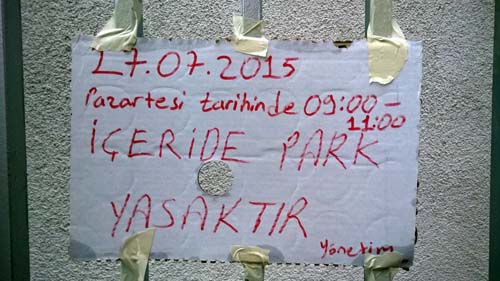 27.07.2015
Pazartesi tarihinde 09:00-
11:00
İÇERİDE PARK
YASAKTIR
Yönetim